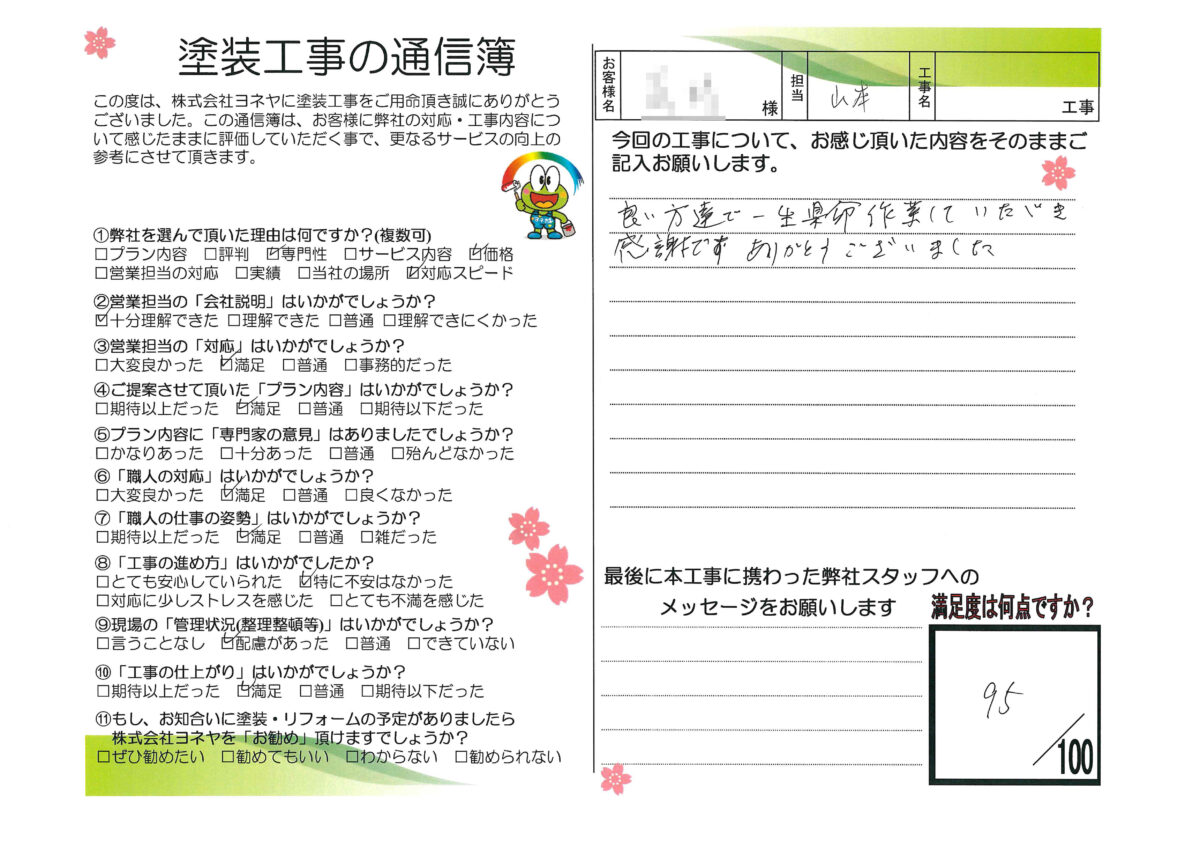 塗装工事の通信簿
この度は、株式会社ヨネヤに塗装工事をご用命頂き誠にありがとう
ございました。この通信簿は、お客様に弊社の対応・工事内容につ
いて感じたままに評価していただく事で、更なるサービスの向上の
参考にさせて頂きます。
①弊社を選んで頂いた理由は何ですか?(複数可)
□プラン内容 □評判 ☑専門性 □サービス内容 ☑価格
□営業担当の対応 □実績 □当社の場所 ☑対応スピード
②営業担当の「会社説明」はいかがでしょうか?
☑十分理解できた □理解できた □普通 □理解できにくかった
③営業担当の「対応」はいかがでしょうか?
□大変良かった ☑満足 □普通 □事務的だった
④ご提案させて頂いた「プラン内容」はいかがでしょうか?
□期待以上だった ☑満足 □普通 □期待以下だった
⑤プラン内容に「専門家の意見」はありましたでしょうか?
□かなりあった □十分あった □普通 □殆んどなかった
⑥「職人の対応」はいかがでしょうか?
□大変良かった ☑満足 □普通 □良くなかった
⑦「職人の仕事の姿勢」はいかがでしょうか?
□期待以上だった ☑満足 □普通 □雑だった
⑧「工事の進め方」はいかがでしたか?
□とても安心していられた ☑特に不安はなかった
□対応に少しストレスを感じた □とても不満を感じた
⑨現場の「管理状況(整理整頓等)」はいかがでしょうか?
□言うことなし ☑配慮があった □普通 □できていない
⑩「工事の仕上がり」はいかがでしょうか?
□期待以上だった ☑満足 □普通 □期待以下だった
⑪もし、お知合いに塗装・リフォームの予定がありましたら
株式会社ヨネヤを「お勧め」頂けますでしょうか?
□ぜひ勧めたい □勧めてもいい □わからない □勧められない
お客様名 様 担当 山本 工事名 工事
今回の工事について、お感じ頂いた内容をそのままご
記入お願いします。
良い方達で一生県命作業していただき
感謝です ありがとうございました
最後に本工事に携わった弊社スタッフへの
メッセージをお願いします
満足度は何点ですか?
95
/100